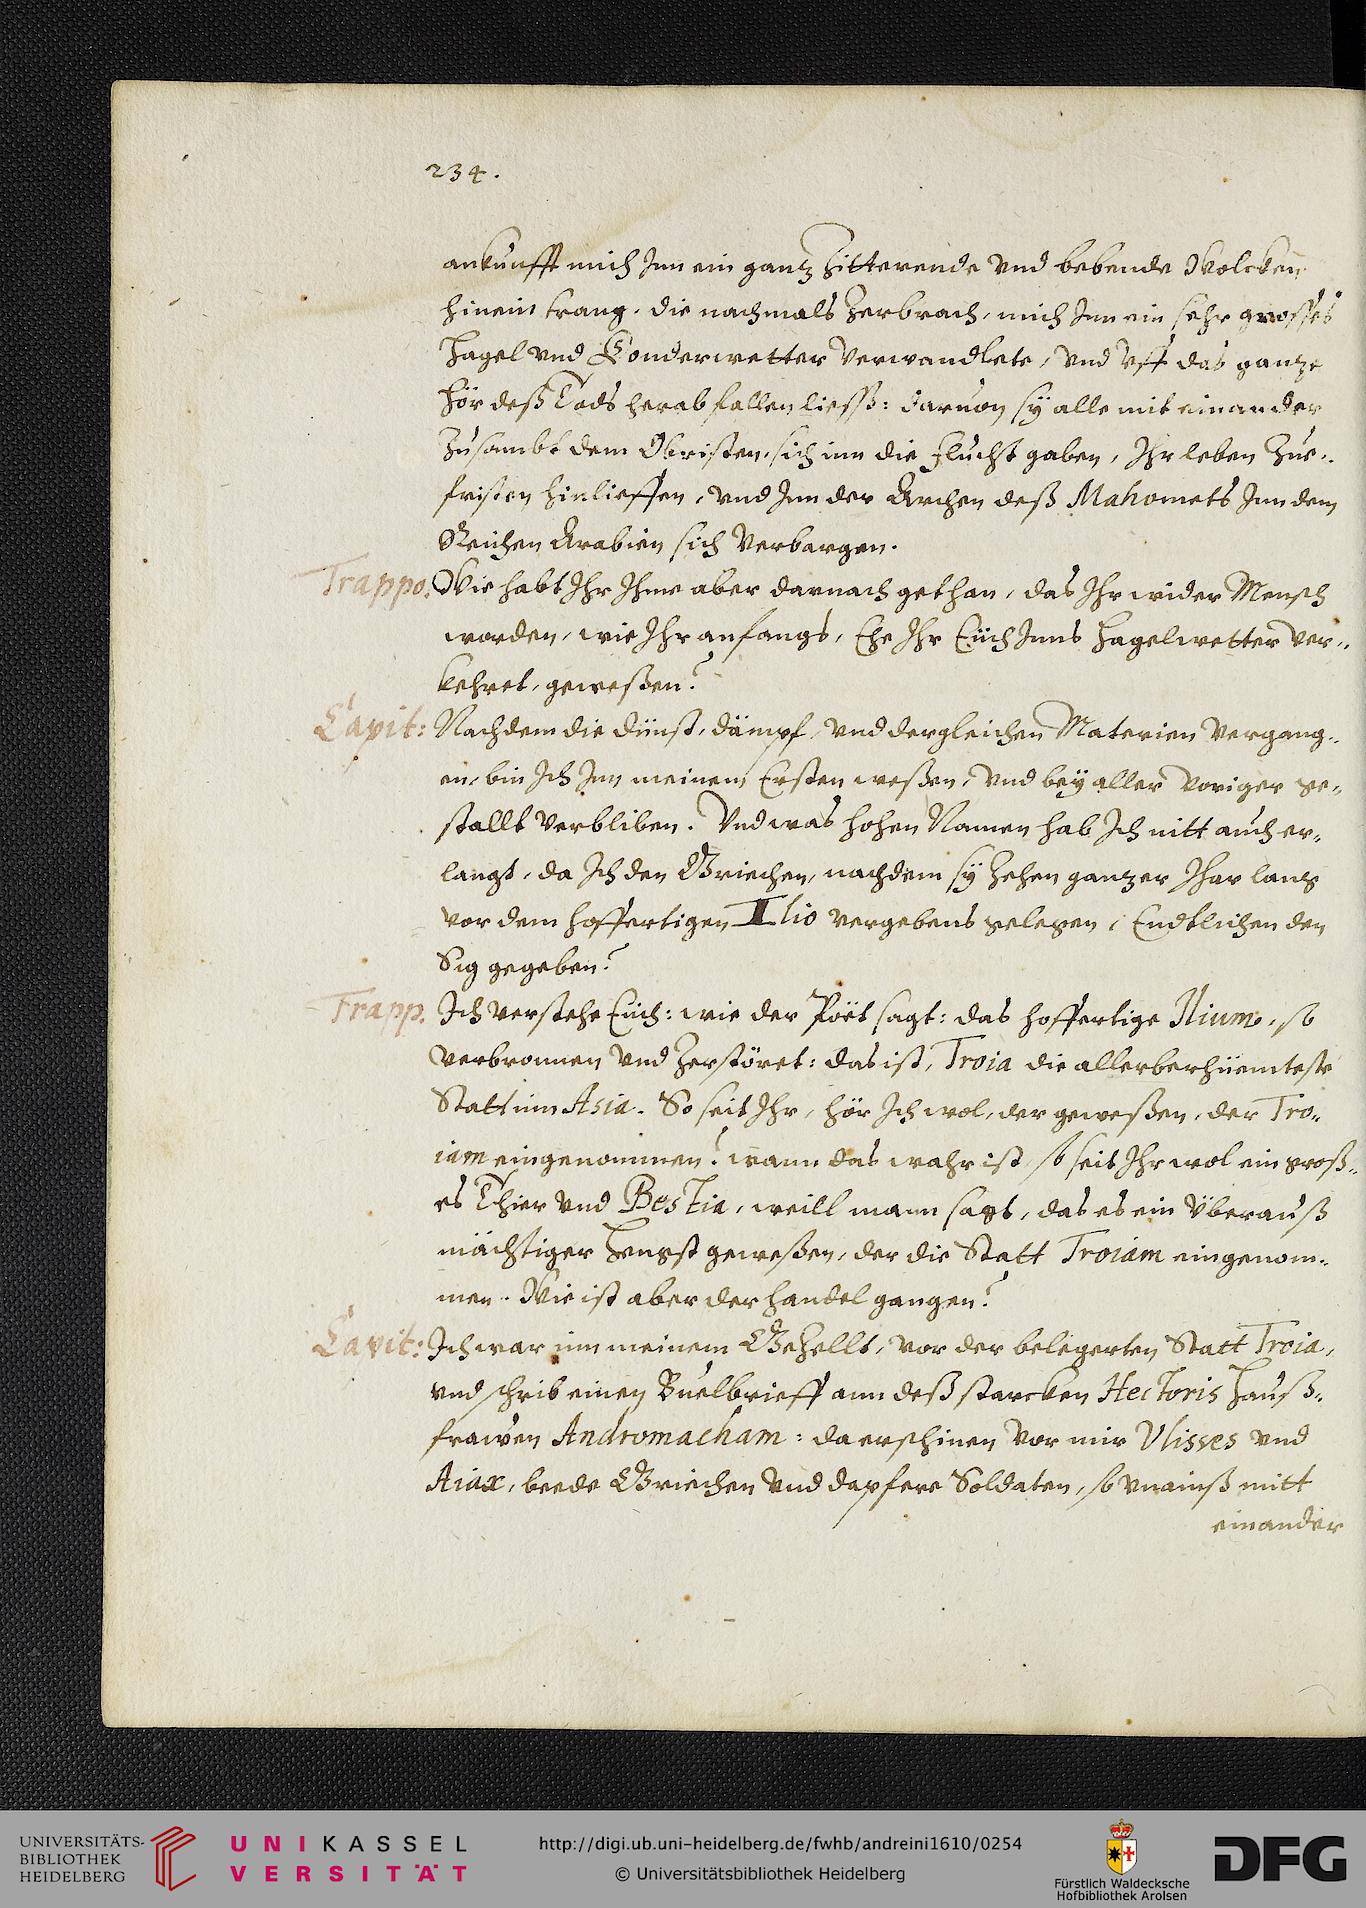 234.
ankunfft mich Inn ein gantz Zitterende vnd bebende Wolcken
hinein trang. die nachmals Zerbrach, mich Inn ein sehr grosses
Hagel vnd Donderwetter verwandlete, vnd vff das gantze
hör deß Tods herab fallen liesß: daruon sÿ alle mit einander
Zusambt dem Obristen, sich inn die flucht gaben, Ihr leben Zue..
fristen hinlieffen, vnd Inn der Archen deß Mahomets Inn dem
Reichen Arabien sich verbargen.
Trappo. Wie habt Ihr Ihme aber darnach gethan, das Ihr wider Mensch
worden, wie Ihr anfangs, Ehe Ihr Eüch Inns Hagelwetter ver..
kehret, geweßen?
Capit: Nachdem die dünst, dämpf, vnd dergleichen Materien vergang..
en, bin Ich Inn meinem Ersten weßen, vnd beÿ aller voriger ge..
stallt verbliben. Vnd was hohen Namen hab Ich nitt auch er..
langt, da Ich den Griechen, nachdem sÿ Zehen gantzer Ihar lang
vor dem hoffertigen Ilio vergebens gelegen, Endtlichen den
Sig gegeben?
Trapp. Ich verstehe Eüch: wie der Poët sagt: das hoffertige Ilium, so
verbronnen vnd Zerstöret: das ist, Troia die allerberhüemteste
Statt inn Asia. So seit Ihr, hör Ich wol, der geweßen, der Tro..
iam eingenommen? wann das wahr ist, so seit Ihr wol ein groß..
es Thier vnd Bestia, weill mann sagt, das es ein überauß
mächtiger Hengst geweßen, der die Statt Troiam eingenom..
men. Wie ist aber der handel gangen?
Capit: Ich war inn meinem Gezellt, vor der belegerten Statt Troia,
vnd schrib einen Buelbrieff ann deß starcken Hectoris Hauß..
frawen Andromacham: da erschinen vor mir Vlisses vnd
Aiax, beede Griechen vnd dapfere Soldaten, so vnainß mitt
einander
UNIVERSITÄTS-
BIBLIOTHEK
HEIDELBERG
UNIKASSEL
VERSITÄT
http://digi.ub.uni-heidelberg.de/fwhb/andreini1610/0254
© Universitätsbibliothek Heidelberg
Fürstlich Waldecksche
Hofbibliothek Arolsen
DFG